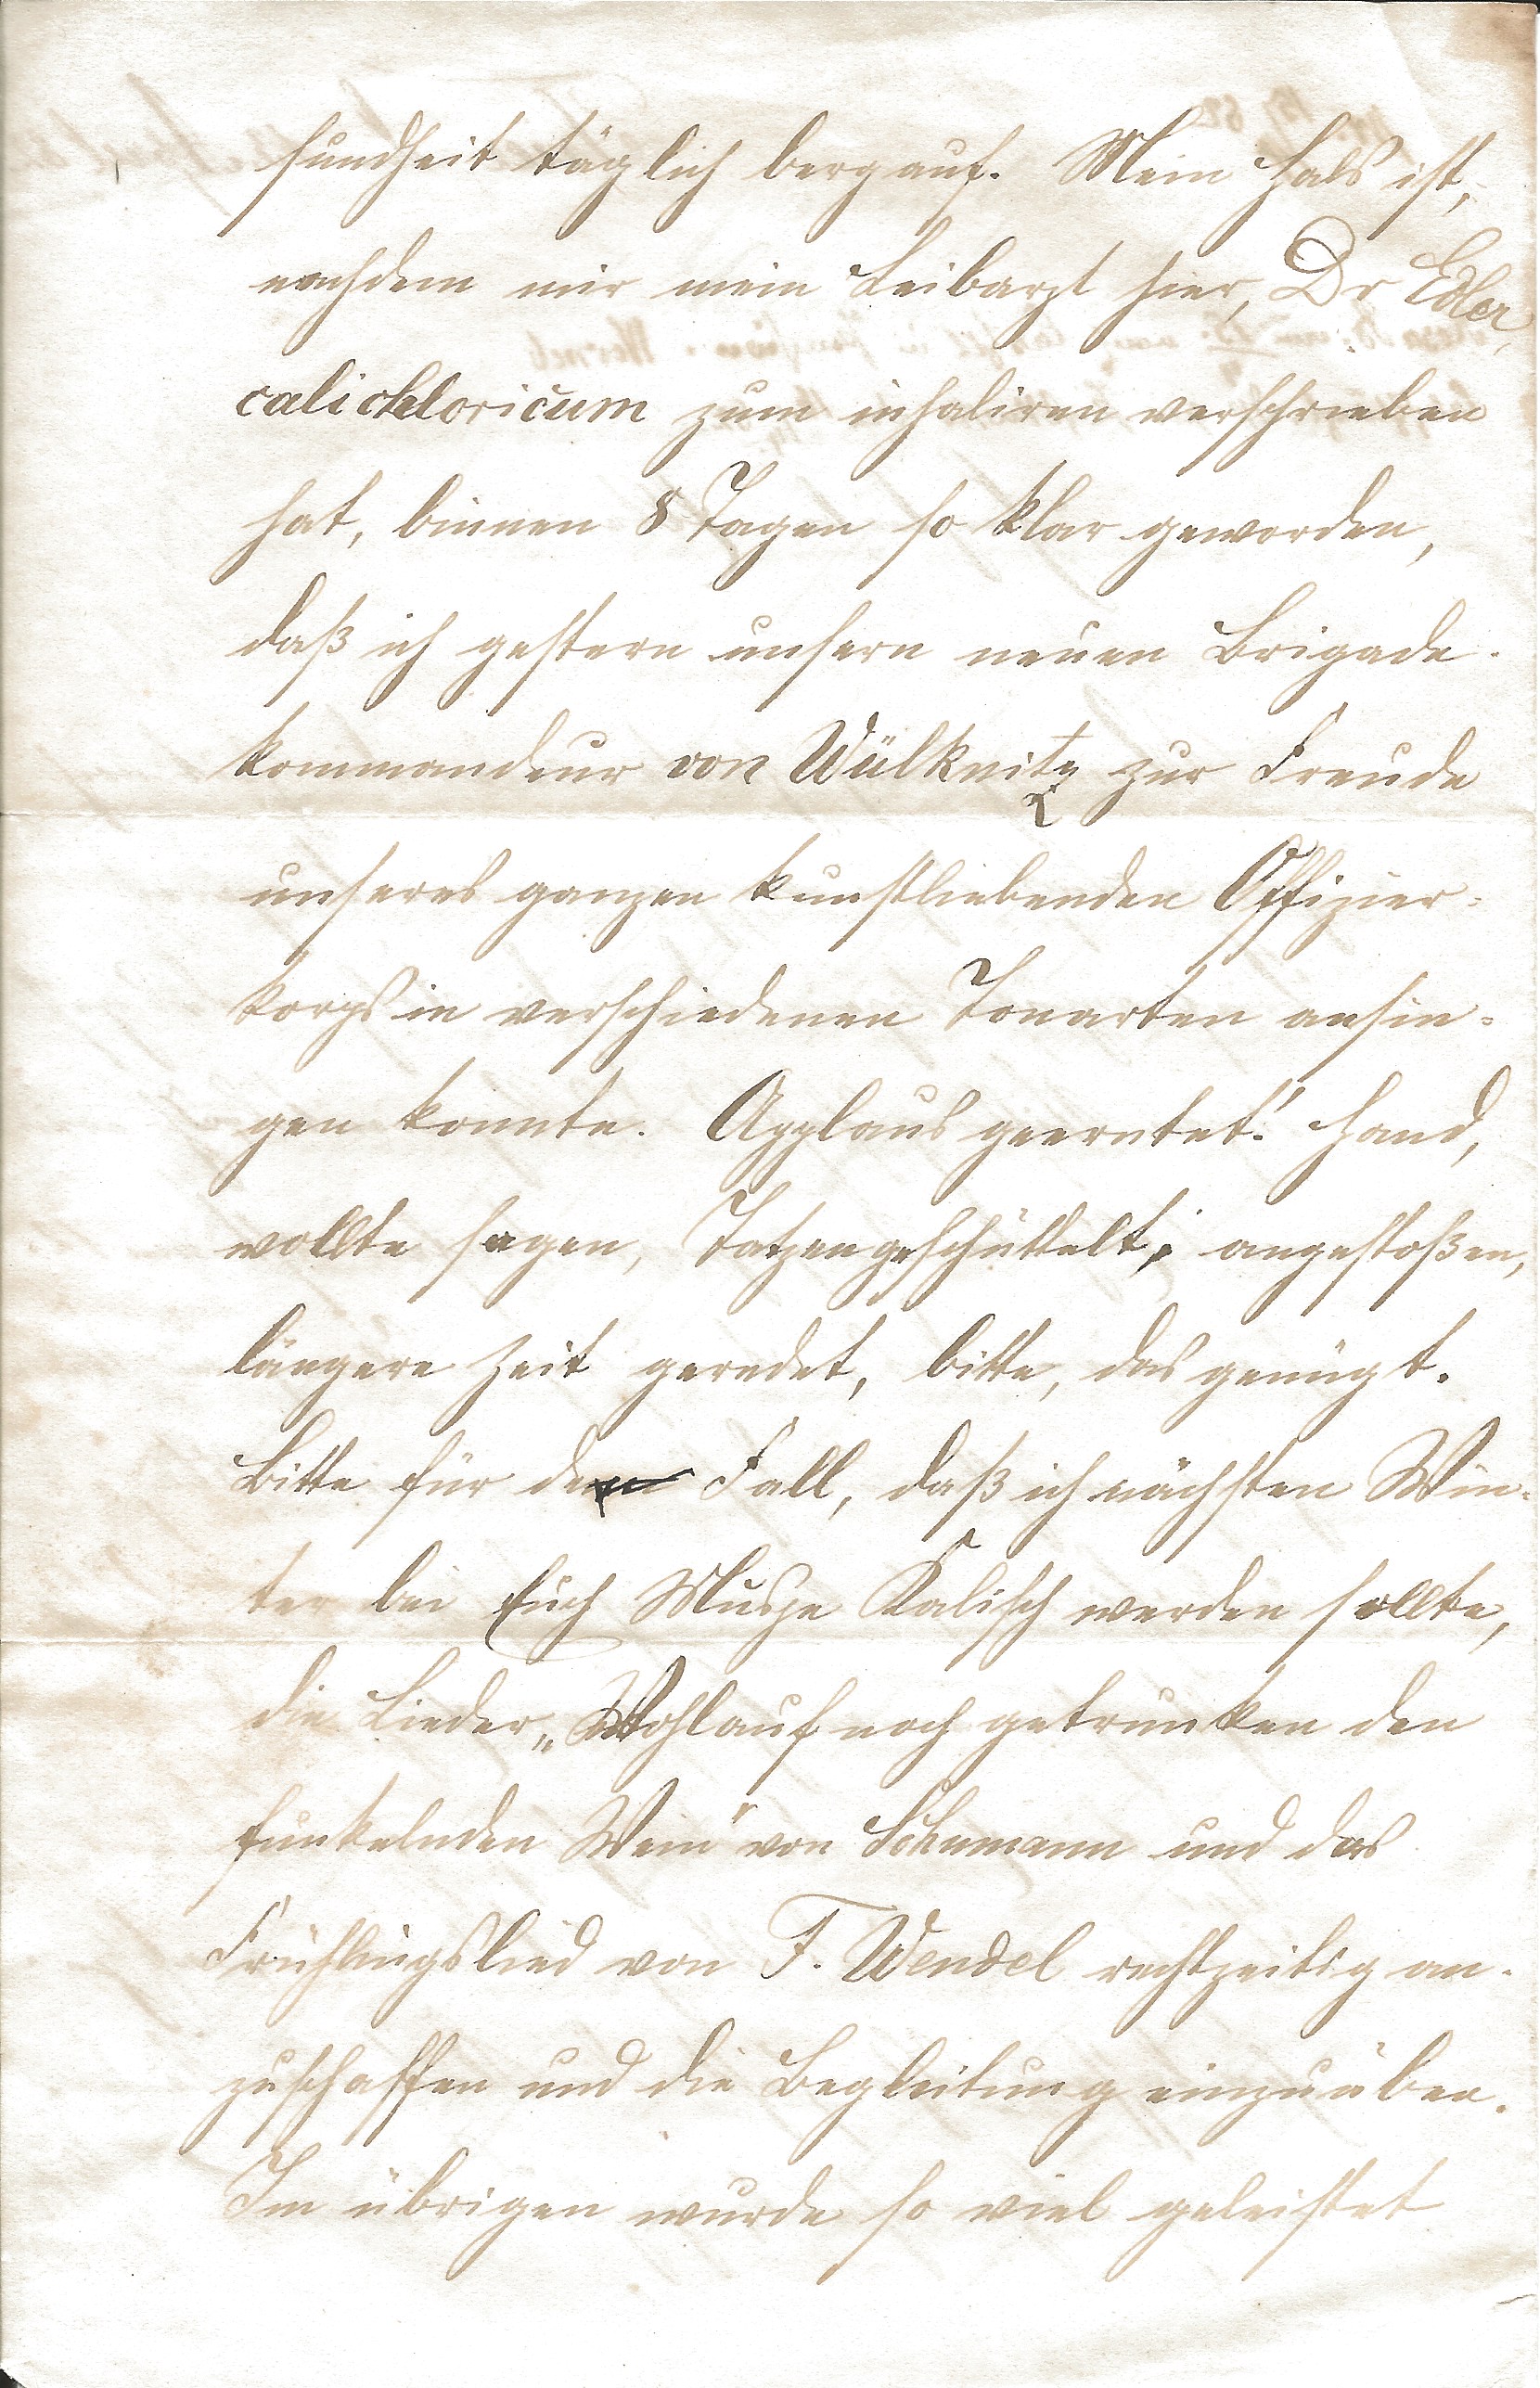 sundheit täglich bergauf. Mein Hals ist,
nachdem mir mein Leibarzt hier, Dr Edler,
cali chloricum zum inhaliren verschrieben
hat, binnen 8 Tagen so klar geworden,
daß ich gestern unsern neuen Brigade-
kommandeur von Wülknitz zur Freude
unseres ganzen kunstliebenden Offizier-
korps in verschiedenen Tonarten ansin-
gen konnte. Applaus geerntet! Hand,
wollte sagen, Tatzengeschüttelt; angestoßen,
längere Zeit geredet, bitte, das genügt.
Bitte für den Fall, daß ich nächsten Win-
ter bei Euch Musje Kalisch werden sollte,
die Lieder „Wohlauf noch getrunken den
funkelnden Wein" von Schumann und das
Frühlingslied von F. Wendel rechtzeitig an-
zuschaffen und die Begleitung einzuüben.
Im übrigen wurde so viel geleistet